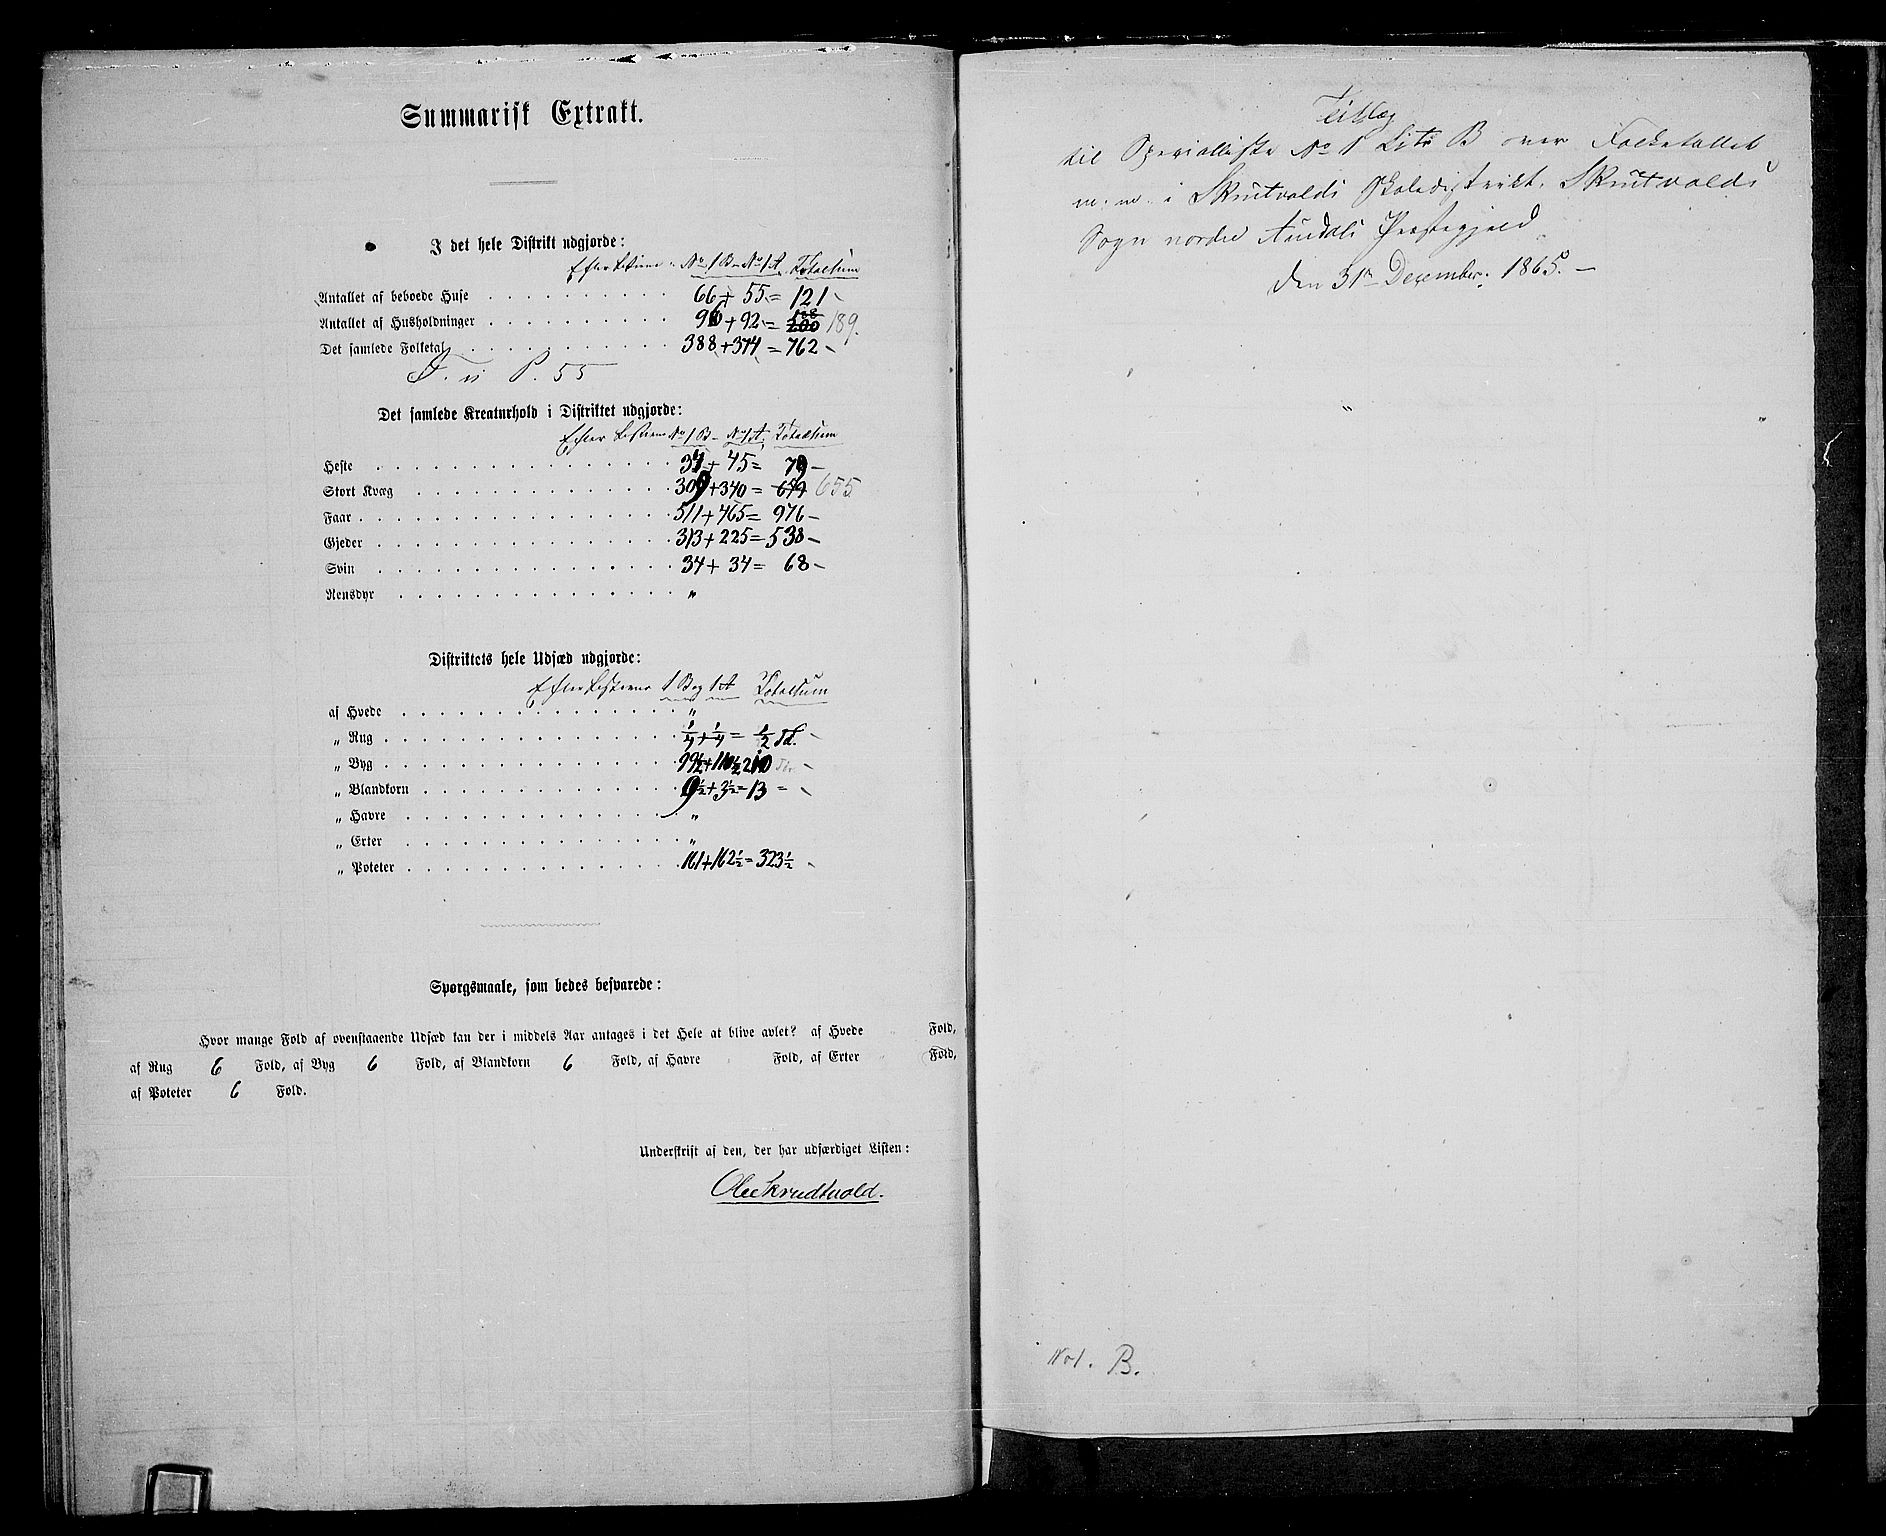 Summarisk Extrakt.
I det hele Distrikt udgjorde:
Efter Listerne No 1 B - No 1 A. Totalsum
Antallet af beboede Huse 66 + 55 = 121
Antallet af Husholdninger 96 + 92 = 188 200 189.
Det samlede Folketal 388 + 374 = 762
P. 55
Det samlede Kreaturhold i Distriktet udgjorde:
Efter Listerne No 1 B - No 1 A, Totalsum
Heste 34 + 45 = 79
Stort Kvæg 309 + 340 = 649 655
Faar 511 + 465 = 976
Gjeder 313 + 225 = 538
Svin 34 + 34 = 68
Rensdyr "
Distriktets hele Udsæd udgjorde:
Efter Listerne 1 B og 1 A Totalsum
af Hvede "
„ Rug 1/4 + 1/4 = 1/2 Td.
„ Byg 99 1/2 + 110 1/2 210
„ Blandkorn 9 1/2 + 3 1/2 = 13 =
„ Havre "
„ Erter "
„ Poteter 161 + 162 1/2 = 323 1/2
Spørgsmaale, som bedes besvarede:
Hvor mange Fold af ovenstaaende Udsæd kan der i middels Aar antages i det Hele at blive avlet? af Hvede Fold,
af Rug 6 Fold, af Byg 6 Fold, af Blandkorn 6 Fold, af Havre Fold, af Erter Fold,
af Poteter 6 Fold.
Underskrift af den, der har udfærdiget Listen:
Ole Skrudtvold.
Tillæg
til Specialliste No 1 Litr B over Folketallet
m. m. i Skrutvolds Skoledistrikt, Skrutvolds
Sogn nordre Aurdals Præstegjeld
den 31te December 1865. —
No 1. B.